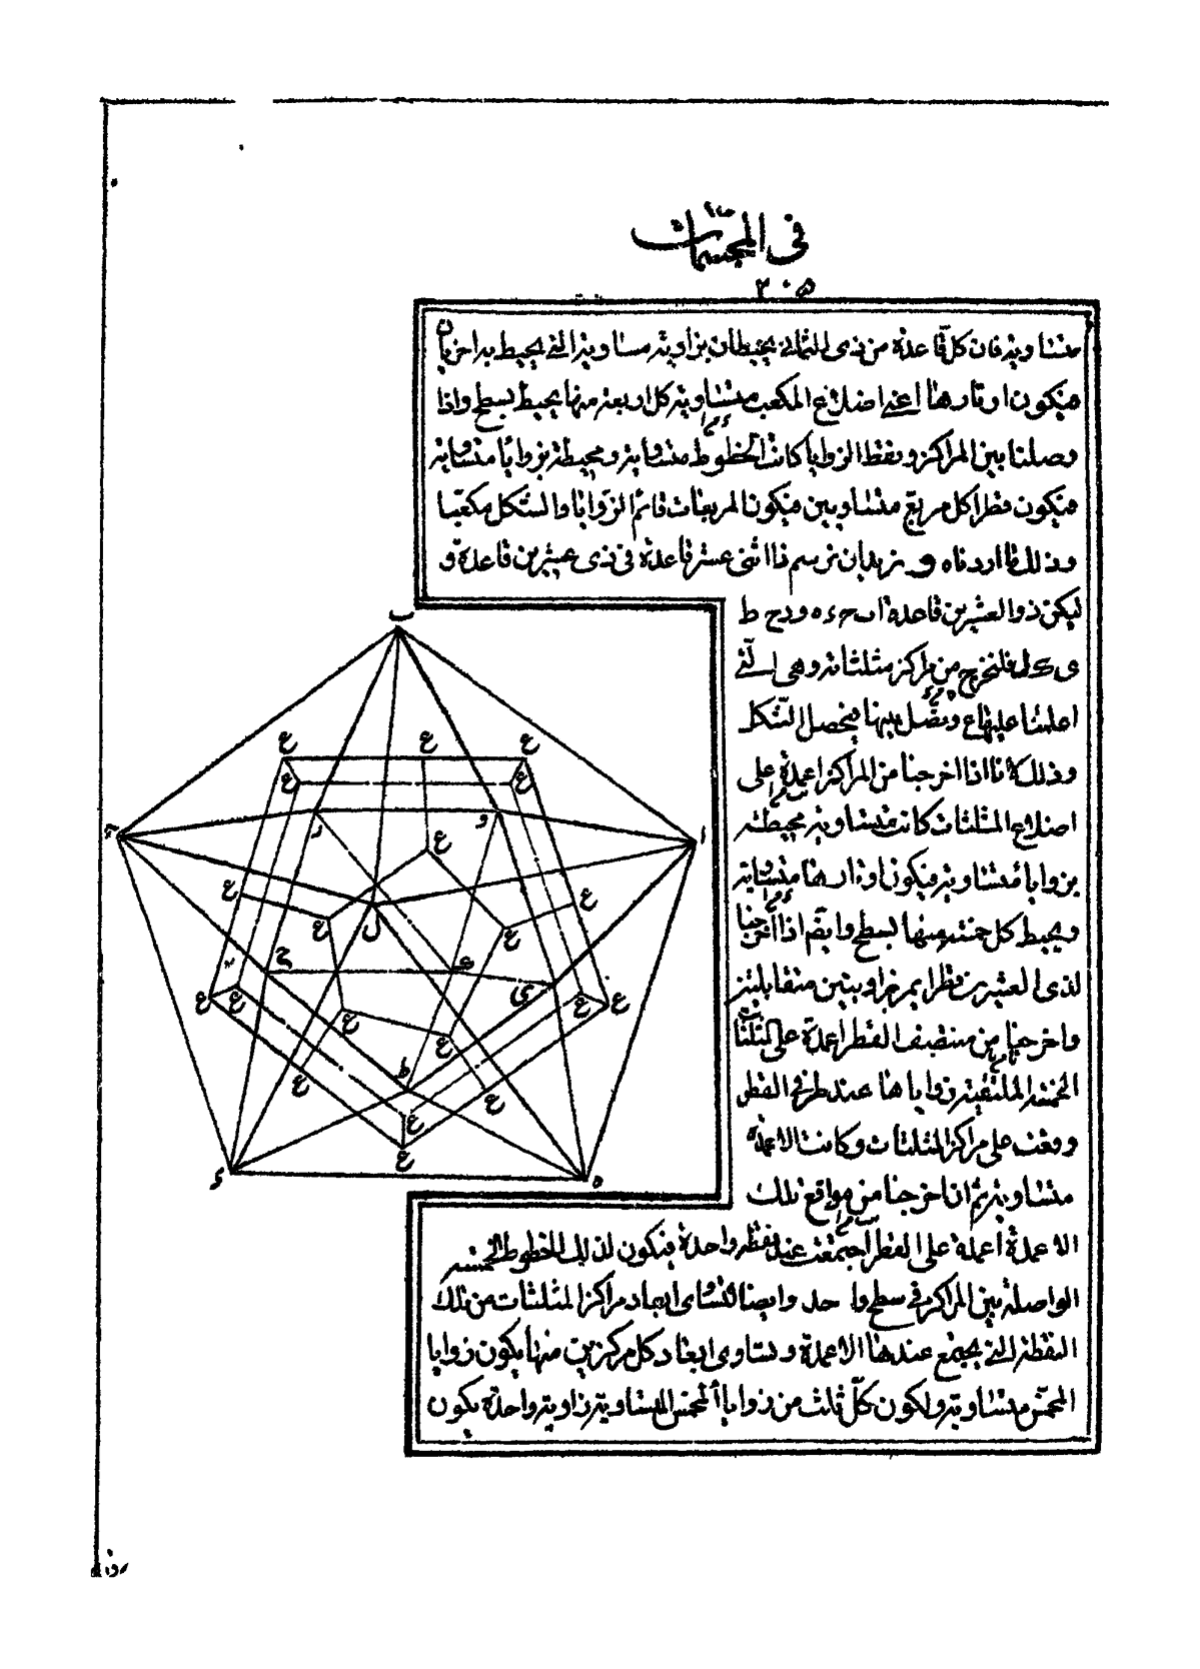 في المجسمات
٣٠٥
متساوية فان كل قاعدة من ذى الثمانى يحيطان بزاوية مساوية التى يحيط بها اخريان
فيكون اوتارها اعنى اضلاع المكعب متساوية كل اربعة منها يحيط بسطح واذا
وصلنا بين المراكز ونقط الزوايا كانت الخطوط متساوية ومحيطة بزوايا متساوية
فيكون قطرا كل مربع متساويين فيكون المربعات قائم الزوايا والشكل مكعبا
وذلك ما اردناه و نريدان نرسم ذا اثنى عشر قاعدة فى ذى عشرين قاعدة و
ليكن ذو العشرين قاعدة ا ب ح ء ه و ر ح ط
ى ك ل فلنخرج من مراكز مثلثاته وهى التى
اعلمنا عليها ع ونصل بينها فيحصل الشكل
وذلك لانا اذا اخرجنا من المراكز اعمدة على
اضلاع المثلثات كانت متساوية محيطة
بزوايا متساوية فيكون اوتارها متساوية
ويحيط كل خمسة منها بسطح وايضا اذا اخرجنا
لذى العشرين قطرا يمر بزاويتين متقابلتين
واخرجنا من منتصف القطر اعمدة على المثلثات
الخمسة الملتقية زواياها عند طرفى القطر
وقعت على مراكز المثلثات وكانت الاعمدة
متساوية ثم ان اخرجنا من مواقع تلك
الاعمدة اعمدة على القطر اجتمعت عند نقطة واحدة فيكون لذلك الخطوط الخمسة
الواصلة بين المراكز فى سطح واحد وايضا لتساوى ابعاد مراكز المثلثات من تلك
النقطة التى يجتمع عندها الاعمدة وتساوى ابعاد كل مركزين منها يكون زوايا
المخمس متساوية ولكون كل ثلث من زوايا المخمس المتساوية زاوية واحدة يكون
ب
ع ع ع
ع ع
ا
ر و
ع
ع ع
ل
ع ع
ح ك ى
ع ع ع ع
ع ع
ط
ع ع
ع
ع
ء ه